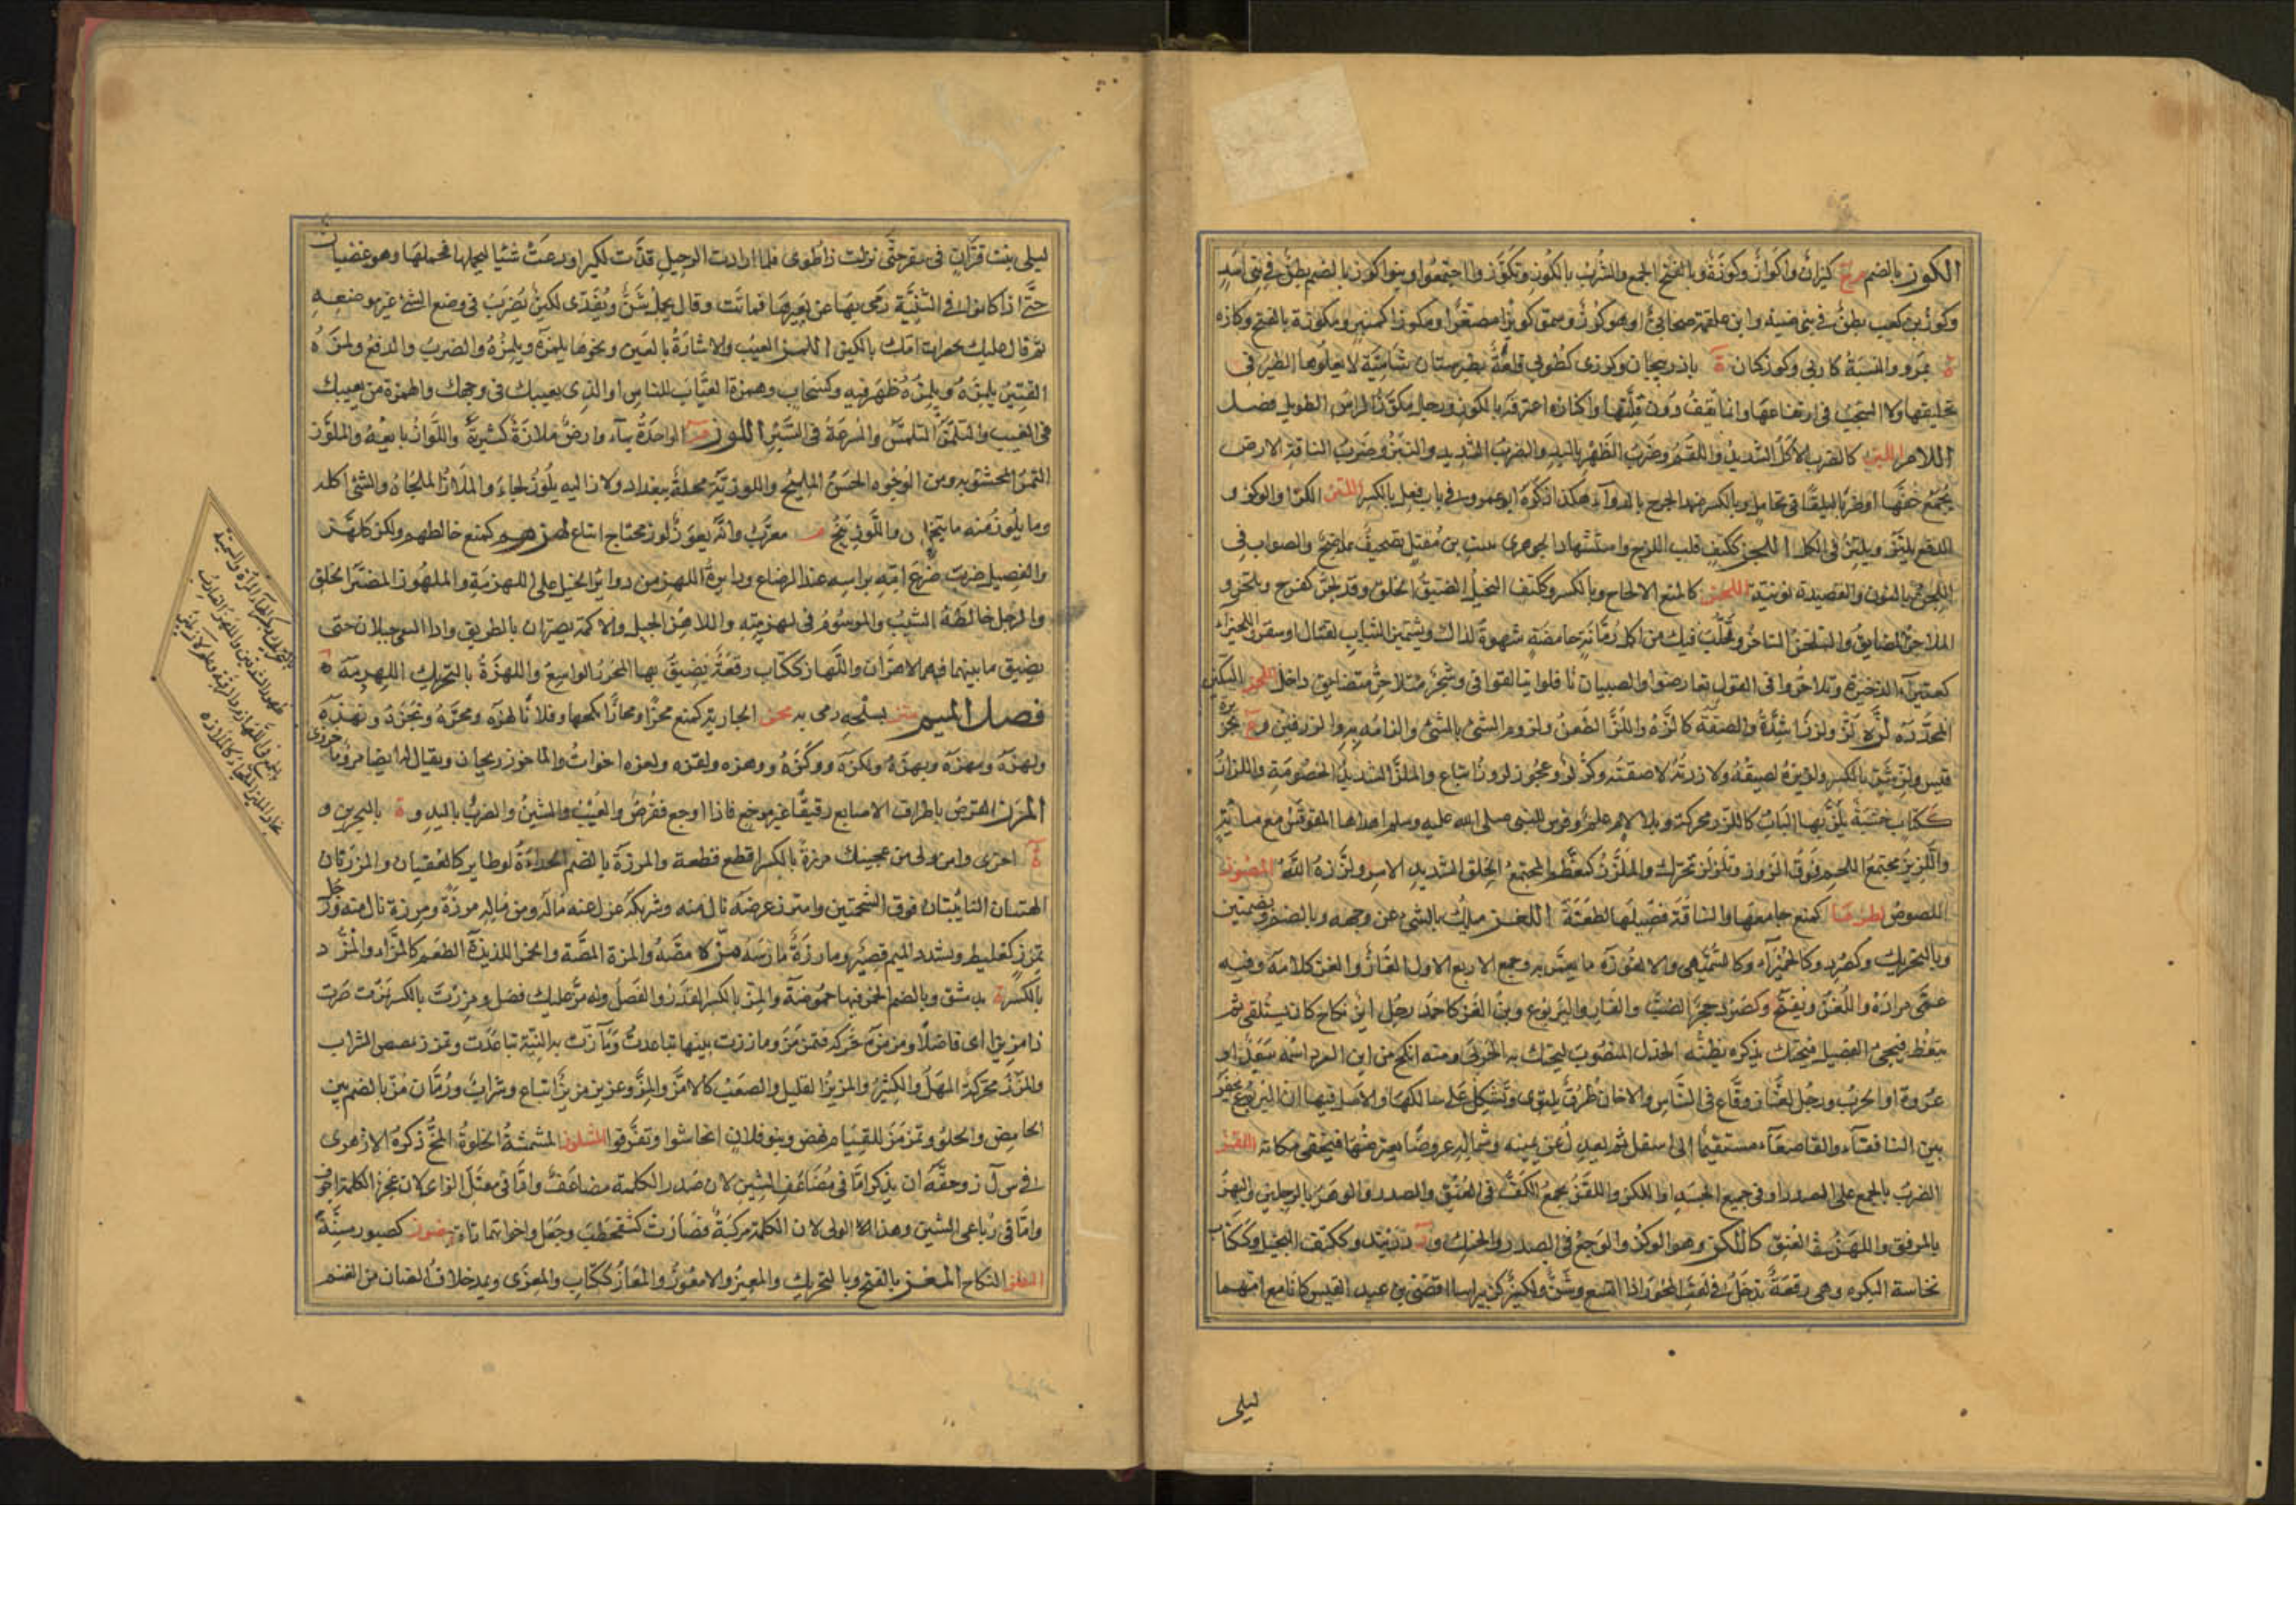 الكوز بالضم م ج كيزان واكواز وكوزة وبالفتح الجمع والشرب بالكوز وتكوزوا اجتمعوا وبنو كوز بالضم بطن في بني اسد
وكوز بن كعب بطن في بني ضبة وابن علقمة صحابي او هو كرز وسموا كويزا مصغرا ومكوزا كمنبر ومكوزة بالفتح وكازه
ة بمرو والنسبة كازي وكوزكنان ة باذربيجان وكوزى كطوبى قلعة بطبرستان شامية لا يعلوها الطير في
تحليقها ولا السحب في ارتفاعها وانما تقف دون قلتها واكتازه اغترفه بالكوز ورجل مكوز الراس الطويل فصل
اللام اللبز كالضرب الاكل الشديد واللقم وضرب الظهر باليد والضرب الشديد والنبز وضرب الناقة الارض
بجمع خفها او ضربا لطيفا في تحامل وبالكسر ضمد الجرح بالدواء هكذا ذكره ابو عمرو في باب فعل بالكسر اللتز الكز او الوكز و
الدفع يلتز ويلتز في الكل اللجز ككتف قلب اللزج واستشهاد الجوهري ببيت بن مقبل تصحيف فاضح والصواب في
البيت اللجن بالنون والقصيدة نونية اللحز كالمنع الالحاح وبالكسر وككتف البخيل الضيق الخلق وقد لحز كفرح وتلحز و
الملاحز المضايق والتلحز التاخر وتحلب فيك من اكل رمانة حامضة شهوة لذلك وتشمير الثياب لقتال او سفر واللحيزاء
كعتيراء الذخيرة وتلاحزوا في القول تعارضوا والصبيان ناقلوا بالقوافي وشجر متلاحز متضايق داخل اللخز السكين
المحددة لزه لزا ولززا شدة والصقه كالزه واللز الطعن ولزوم الشيء بالشيء والزامه به والزرفين و ع بجزيرة
قيس ولز شر بالكسر ولزيزه لصيقه ولازته لاصقته وكز لز وعجوز لزوز اتباع والملز الشديد الخصومة واللزاز
ككتاب خشبة يلز بها الباب كاللزز محركة وبلا لام علم وفرس للنبي صلى الله عليه وسلم اهداها المقوقس مع مارية
واللزيز مجتمع اللحم فوق الزور وتلزلز تحرك والملزز كمعظم المجتمع الخلق الشديد الاسر ولززه الله اللصوز
اللصوص لطزها كمنع جامعها والناقة فصيلها لطعته اللغز ميلك بالشيء عن وجهه وبالضم وبضمتين
وبالتحريك وكصرد وكالحميراء وكالسميهى والالغوزة ما يعمى به وجمع الاربع الاول الغاز والغز كلامه وفيه
عمى مراده واللغز ويفتح وكصرد جحر الضب والفار واليربوع وبن الغز كاحمد رجل اير نكاح كان يستلقي ثم
ينعظ فيجيء الفصيل فيحتك بذكره يظنه الجذل المنصوب ليحتك به الجربى ومنه انكح من ابن الغز اسمه سعد او
عروة او الحرث ورجل لغاز وقاع في الناس والالغاز طرق تلتوي وتشكل على سالكها والاصل فيها ان اليربوع يحفر
بين النافقاء والقاصعاء مستقيما الى اسفل ثم يعدل عن يمينه وشماله عروضا يعترضها فيخفى مكانه اللقز
الضرب بالجمع على الصدر او في جميع الجسد او اللكز واللقز بجمع الكف في العنق والصدر والوهز بالرجلين والبهز
بالمرفق واللهز في العنق كاللكز وهو الوكز والوجء في الصدر والحنك و د بدربند وككتف البخيل وككتاب
نخاسة البكرة وهي رقعة تدخل في ثقب المحور اذا اتسع وشن ولكيز كزبير ابنا افصى بن عبد القيس كانا مع امهما
ليلى
ليلى بنت قران في سفر حتى نزلت ذا طوى فلما ارادت الرحيل فدت لكيزا ودعت شنا ليحملها فحملها وهو غضبان
حتى اذا كانوا في الثنية رمى بها عن بعيرها فماتت وقال يحمل شن ويفدى لكيز يضرب في وضع الشيء غير موضعه
ثم قال عليك بجعرات امك يا لكيز اللمز العيب والاشارة بالعين ونحوها يلمزه ويلمزه والضرب والدفع ولمزه
القتير يلمزه ويلمزه ظهر فيه وكسحاب وهمزة العياب للناس او الذي يعيبك في وجهك والهمزة من يعيبك
في الغيب والتلمز التلمس والسرعة في السير اللوز م الواحدة بهاء وارض ملازة كثيرته واللواز بايعه والملوز
التمر المحشو به ومن الوجوه الحسن المليح واللوزية محلة ببغداد ولاز اليه يلوز لجا والملاز الملجا والشيء اكله
وما يلوز منه ما يتخلص واللوزينج م معرب وانه يعوز لوز محتاج اتباع لهزهم كمنع خالطهم ولكز كلهز
والفصيل ضرب ضرع امه براسه عند الرضاع ودايرة اللهز من دواير الخيل على اللهزمة والملهوز المضبر الخلق
والرجل خالطه الشيب والموسوم في لهزمته واللاهز الجبل والاكمة يضران بالطريق واذا التقى جبلان حتى
يضيق ما بينهما فهما لاهزان واللهاز ككتاب رقعة يضيق بها المحور الواسع واللهزة بالتحريك اللهزمة
فصل الميم متز بسلحه رمى به محز الجارية كمنع محزا ومحازا نكحها وفلانا لهزه ومحزه وبحزه ونهزه
ولهزه ومهزه وبهزه ولكزه ووكزه ووهزه ولقزه ولعزه اخوات والماحوز ريحان ويقال له ايضا مرو ماحوزي
المرز القرص باطراف الاصابع رقيقا غير موجع فاذا اوجع فقرص والعيب والشين والضرب باليد و ة بالبحرين و
ة اخرى وامرز لي من عجينك مرزة بالكسر اقطع قطعة والمرزة بالضم الحداة او طاير كالعقيان والمرزتان
الهنتان الناتئتان فوق الشحمتين وامترز عرضه نال منه وشريكه عزل عنه ماله ومن ماله مرزة ومرزة نال منه ورجل
تمرز كعليط وتشدد الميم قصير ومارزه مارسه مزه مصه والمزة المصة والخمر اللذيذة الطعم كالمزاء والمز و
بالكسر ة بدمشق وبالضم الخمر فيها حموضة والمز بالكسر القدر والفضل وله مز عليك فضل ومززت بالكسر تمز صرت
ذا مز اي فاضلا ومزمزه حركه فتمزمز وما ززت بينهما باعدت وتمازت به النية تباعدت وتمزز تمصص الشراب
والمزز محركة المهل والكثرة والمزيز القليل والصعب كالامز والمز وعزيز مزيز اتباع وشراب ورمان مز بالضم بين
الحامض والحلو وتمزمز للقيام نهض وبنو فلان انحاشوا وتفرقوا المشلوز المشمشة الحلوة المخ ذكره الازهري
في ش ل ز وحقه ان يذكر اما في مضاعف الشين لان صدر الكلمة مضاعف واما في معتل الزاي لان عجز الكلمة اجوف
واما في رباعي الشين وهذا الاولى لان الكلمة مركبة فصارت كشقحطب وحيعل واخواتها ناقة مضوز كصبور مسنة
المطز النكاح المعز بالفتح وبالتحريك والمعيز والامعوز والمعاز ككتاب والمعزى ويمد خلاف الضان من الغنم